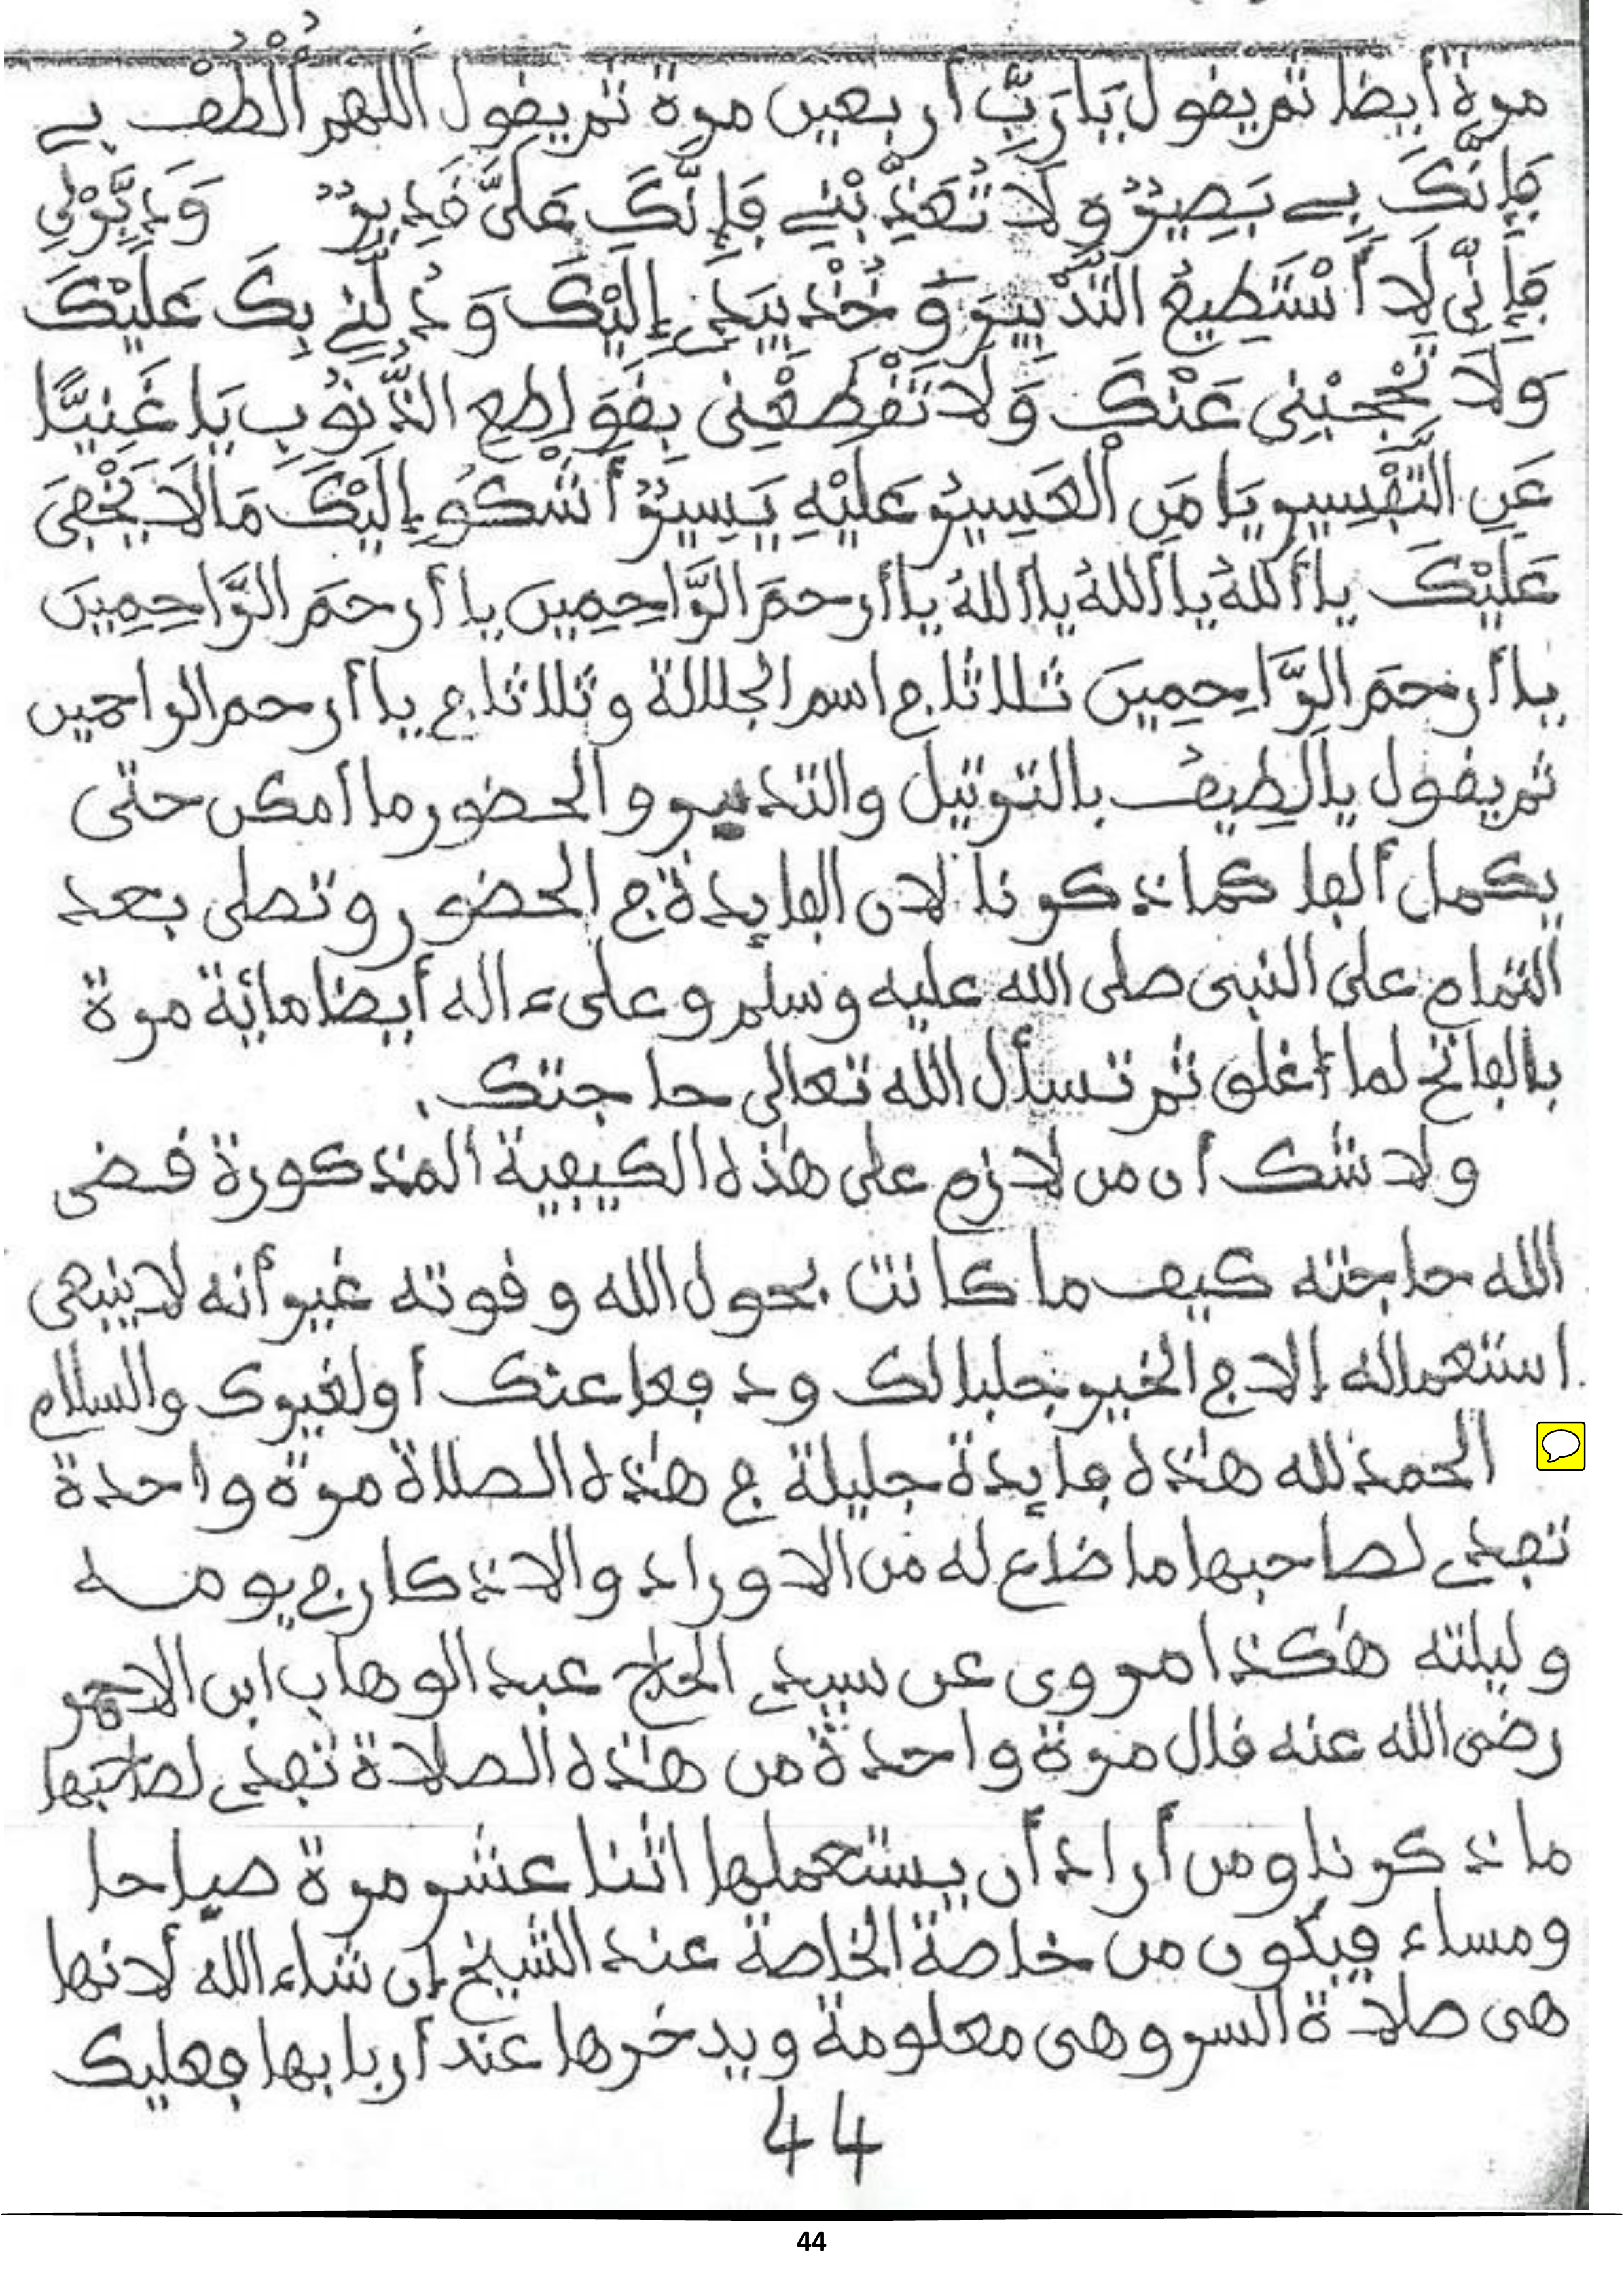 مرة أيضا ثم يقول يَا رَبِّ أربعين مرة ثم يقول اَللهم اُلْطُفْ بي
فَإِنَّكَ بي بَصِيرٌ وَلَا تُعَذِّبْنِي فَإِنَّكَ عَلَيَّ قَدِيرٌ وَدَبِّرْ لِي
فَإِنِّي لَا أَسْتَطِيعُ التَّدْبِيرَ وَخُذْ بِيَدِي إِلَيْكَ وَدُلَّنِي بِكَ عَلَيْكَ
وَلَا تَحْجُبْنِي عَنْكَ وَلَا تَقْطَعْنِي بِقَوَاطِعِ الذُّنُوبِ يَا غَنِيًّا
عَنِ التَّفْسِيرِ يَا مَنِ الْعَسِيرُ عَلَيْهِ يَسِيرٌ أَشْكُو إِلَيْكَ مَا لَا يَخْفَى
عَلَيْكَ يا أَللهُ يا أَللهُ يا أَللهُ يا أرحمَ الرَّاحِمِينَ يا أرحمَ الرَّاحِمِينَ
يا أرحمَ الرَّاحِمِينَ ثلاثا في اسم الجلالة وثلاثا في يا أرحم الراحمين
ثم يقول يا لَطِيفُ بالترتيل والتدبير والحضور ما أمكن حتى
يكمل ألفا كما ذكرنا لان الفايدة في الحضور وتصلى بعد
التمام على النبى صلى الله عليه وسلم وعلى ءاله أيضا مائة مرة
بالفاتح لما أغلق ثم تسأل الله تعالى حاجتك.
ولا شك أن من لازم على هذه الكيفية المذكورة قضى
الله حاجته كيف ما كانت بحول الله وقوته غير أنه لا ينبغى
استعماله إلا في الخير جلبا لك ودفعا عنك أو لغيرك والسلام
الحمد لله هذه فايدة جليلة في هذه الصلاة مرة واحدة
تفدي لصاحبها ما ضاع له من الاوراد والاذكار في يومه
وليلته هكذا مروى عن سيدي الحاج عبد الوهاب ابن الاحمر
رضى الله عنه قال مرة واحدة من هذه الصلاة تفدي لصاحبها
ما ذكرنا ومن أراد أن يستعملها اثنا عشر مرة صباحا
ومساء فيكون من خاصة الخاصة عند الشيخ إن شاء الله لانها
هى صلاة السر وهى معلومة ويدخرها عند أربابها فعليك
44
44